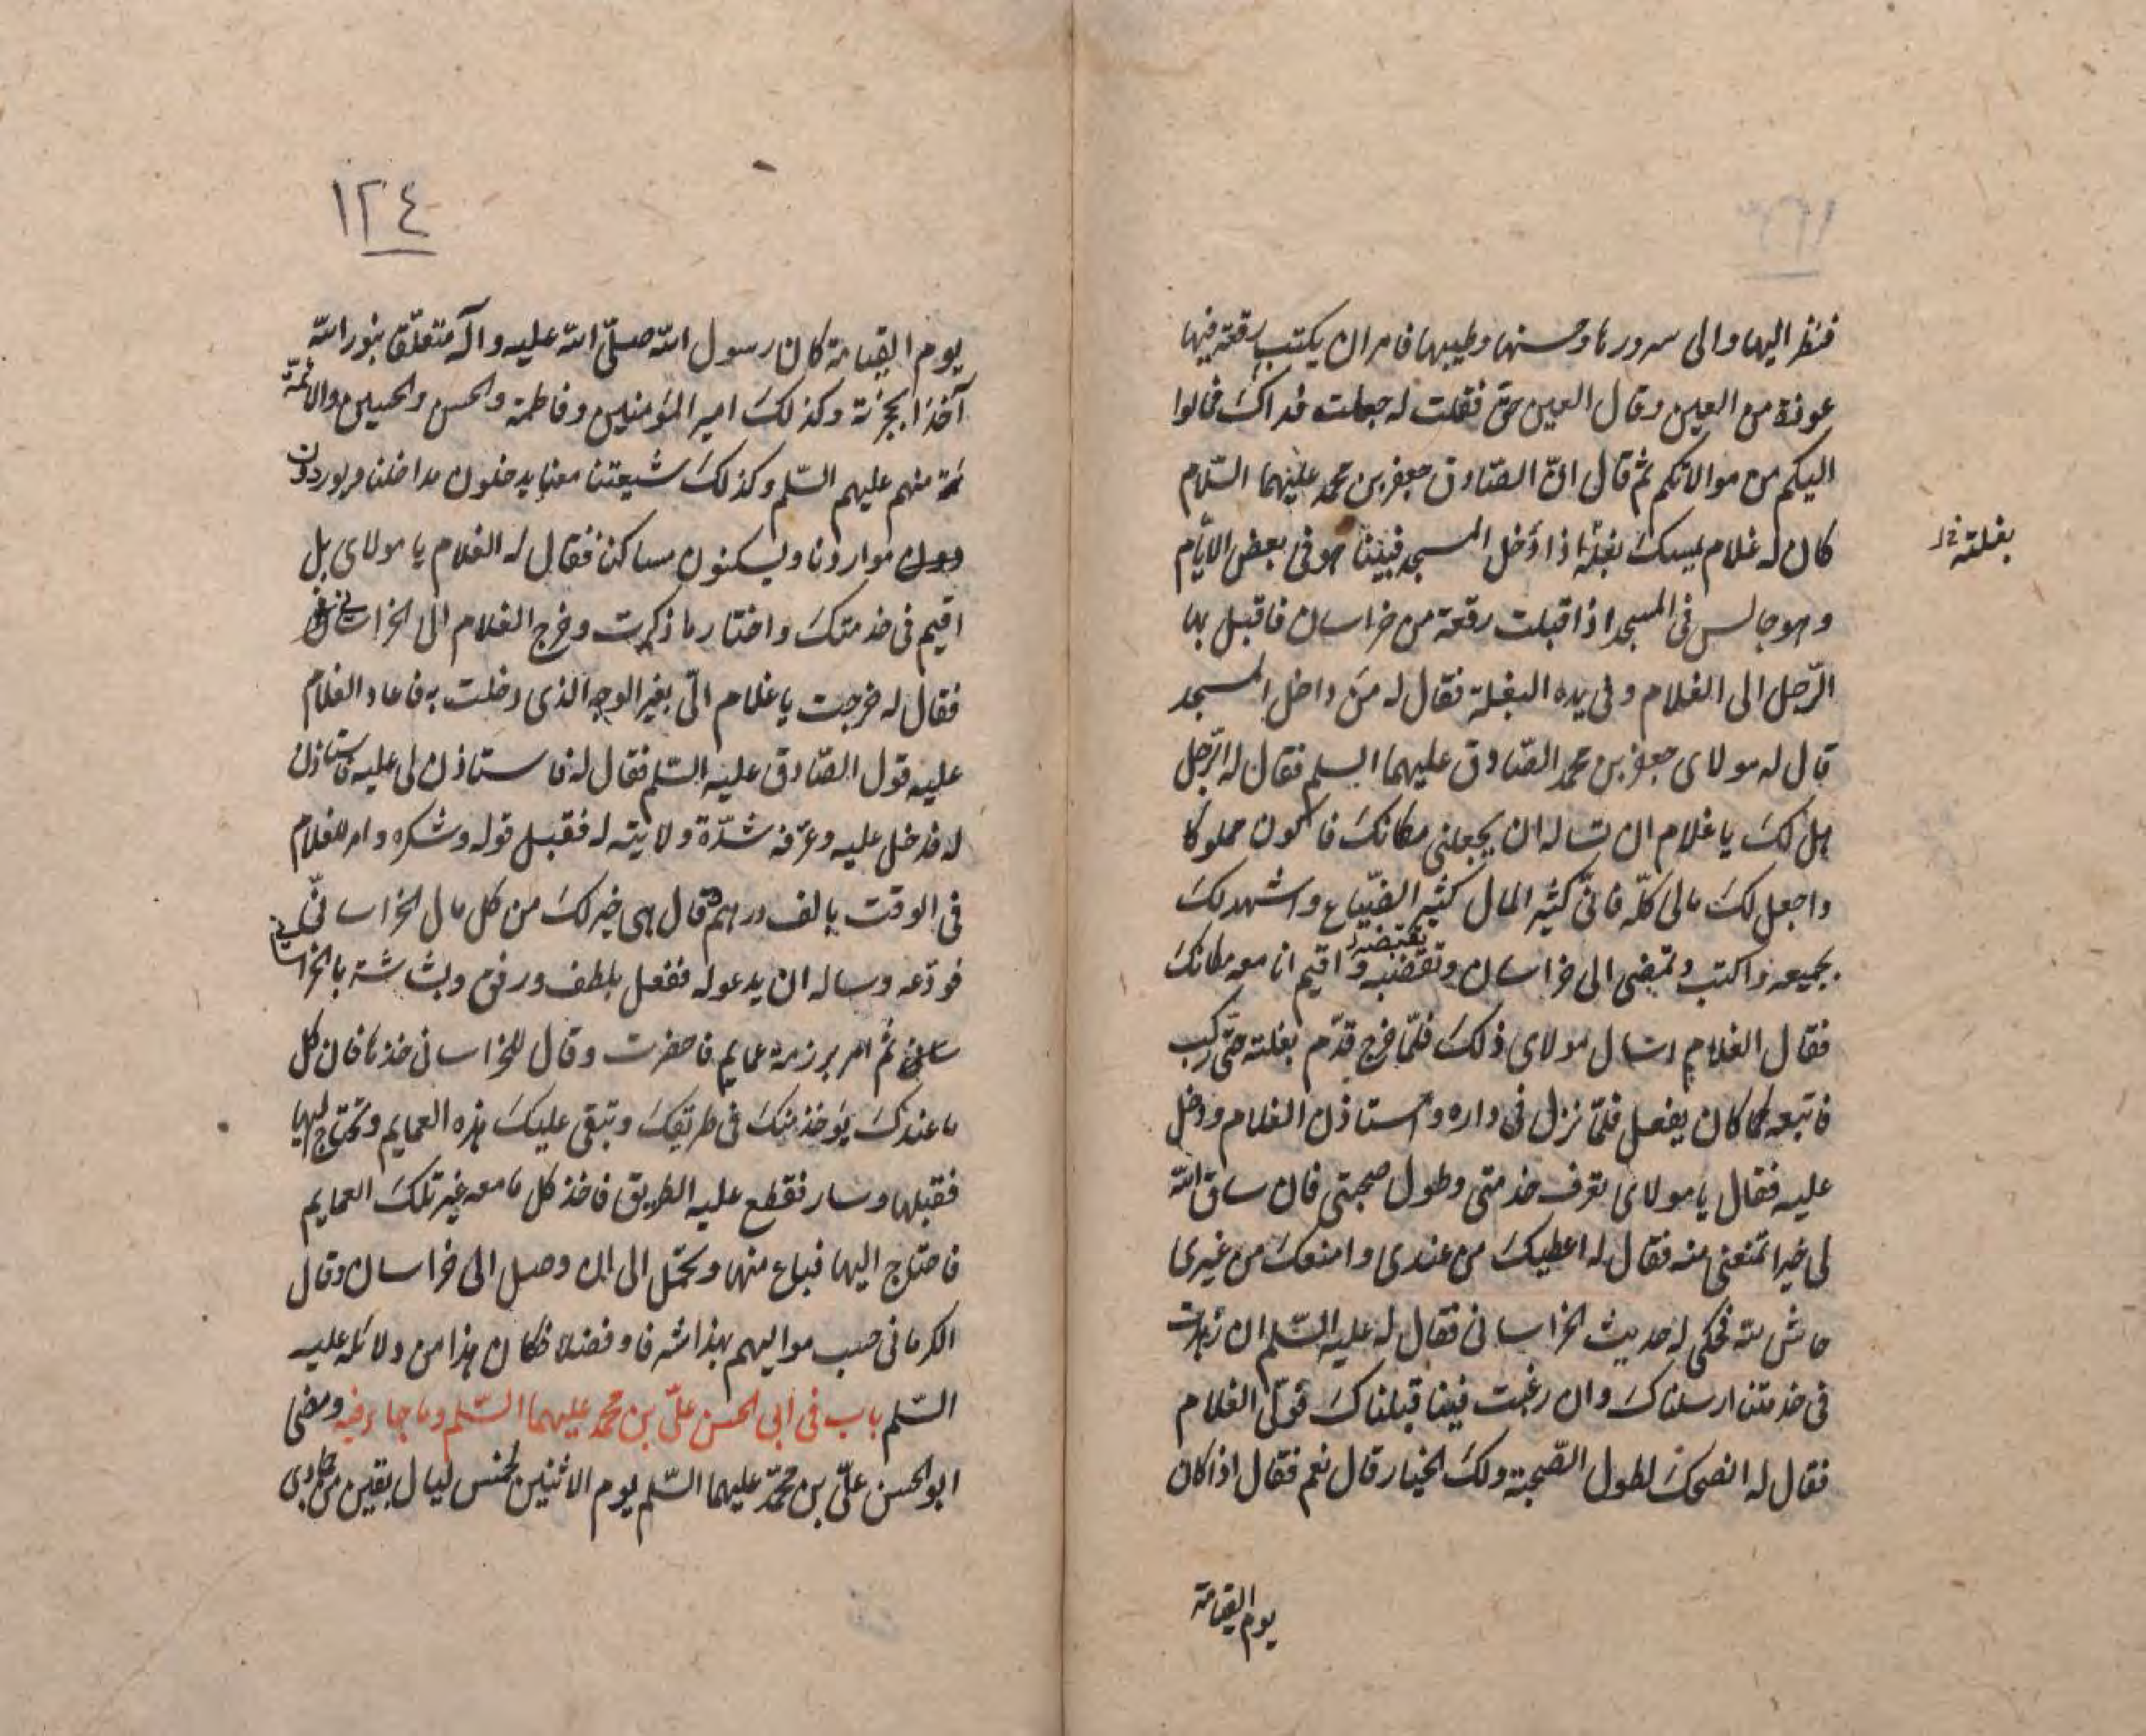 فنظر اليها والى سرورها وحسنها وطيبها فامر ان يكتب رقعة فيها
عوذة من العين وقال العين حق فقلت له جعلت فداك فمالوا
اليكم من موالاتكم ثم قال انّ الصّادق جعفر بن محمد عليهما السّلام
كان له غلام يمسك بغلة اذا دخل المسجد فبينا هو فى بعض الايّام
بغلته خ ل
وهو جالس فى المسجد اذا قبلت رقعة من خراسان فاقبل بها
الرّجل الى الغلام وفى يده البغلة فقال له من داخل المسجد
قال له مولاى جعفر بن محمد الصّادق عليهما السلم فقال له الرّجل
هل لك يا غلام ان تساله ان يجعلنى مكانك فاكون مملوكا
واجعل لك مالى كلّه فانّى كثير المال كثير الضّياع واشهد لك
بجميعه واكتب وتمضى الى خراسان وتقبضه واقيم انا معه مكانك
فقال الغلام اسال مولاى ذلك فلمّا خرج قدّم بغلته حتّى ركب
فاتبعه كما كان يفعل فلمّا نزل فى داره واستاذن الغلام ودخل
عليه فقال يا مولاى تعرف خدمتى وطول صحبتى فان ساق اللّه
لى خيرا تمنعنى منه فقال له اعطيك من عندى وامنعك من غيرى
حاش للّه فحكى له حديث الخراسانى فقال له عليه السّلم ان زهدت
فى خدمتنا ارسلناك وان رغبت فينا قبلناك فولّى الغلام
فقال له انصحك لطول الصّحبة ولك الخيار قال نعم فقال اذا كان
يوم القيامة
١٢٤
يوم القيامة كان رسول اللّه صلّى اللّه عليه وآله متعلّقا بنور اللّه
آخذا بحجزته وكذلك امير المؤمنين وفاطمة والحسن والحسين والائمّة
منهم عليهم السّلم وكذلك شيعتنا معنا يدخلون مداخلنا ويوردون
مواردنا ويسكنون مساكننا فقال له الغلام يا مولاى بل
اقيم فى خدمتك واختار ما ذكرت وخرج الغلام الى الخراسانى
فقال له خرجت يا غلام الىّ بغير الوجه الذى دخلت به فاعاد الغلام
عليه قول الصّادق عليه السّلم فقال له فاستاذن لى عليه فاستاذن
له فدخل عليه وعرّفه شدّة ولايته له فقبل قوله وشكره وامر للغلام
فى الوقت بالف درهم وقال هى خير لك من كل مال الخراسانىّ
فودّعه وساله ان يدعو له ففعل بلطف ورفق وبشاشة بالخراسانى
ثم امر برزمة عمايم فاحضرت وقال للخراسانى خذها فان كل
ما عندك يؤخذ منك فى طريقك وتبقى عليك هذه العمايم وتحتاج اليها
فقبلها وسار فقطع عليه الطريق فاخذ كل ما معه غير تلك العمايم
فاحتاج اليها فباع منها وتحمّل الى ان وصل الى خراسان وقال
الكرمانى حسب مواليهم بهذا شرفا وفضلا فكان هذا من دلائله عليه
السّلم باب فى ابى الحسن علىّ بن محمد عليهما السّلم وما جاء فيه ومضى
ابو الحسن علىّ بن محمّد عليهما السّلم يوم الاثنين لخمس ليال بقين من جمادى